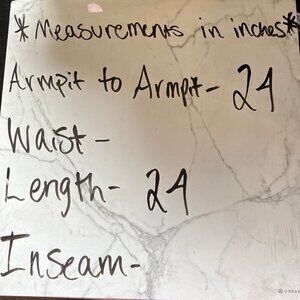 *Measurements in inches*
Armpit to Armpit- 24
Waist-
Length- 24
Inseam-